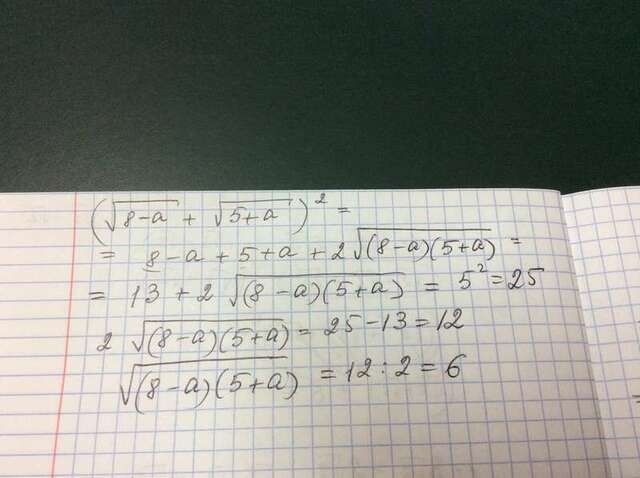 (√(8-a) + √(5+a))² =
= 8-a + 5+a + 2√((8-a)(5+a)) =
= 13 + 2 √((8-a)(5+a)) = 5² = 25
2 √((8-a)(5+a)) = 25-13 = 12
√((8-a)(5+a)) = 12 : 2 = 6